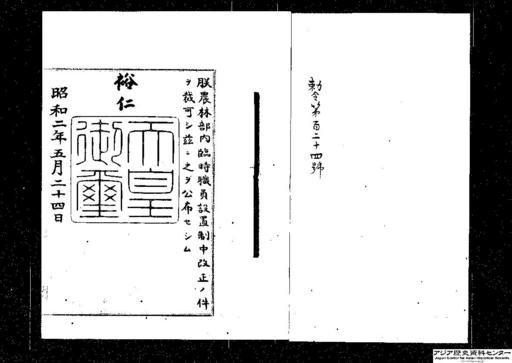 勅令第百二十四號
朕農林部内臨時職員設置制中改正ノ件
ヲ裁可シ茲ニ之ヲ公布セシム
裕仁
天皇御璽
昭和二年五月二十四日
アジア歴史資料センター
Japan Center for Asian Historical Records